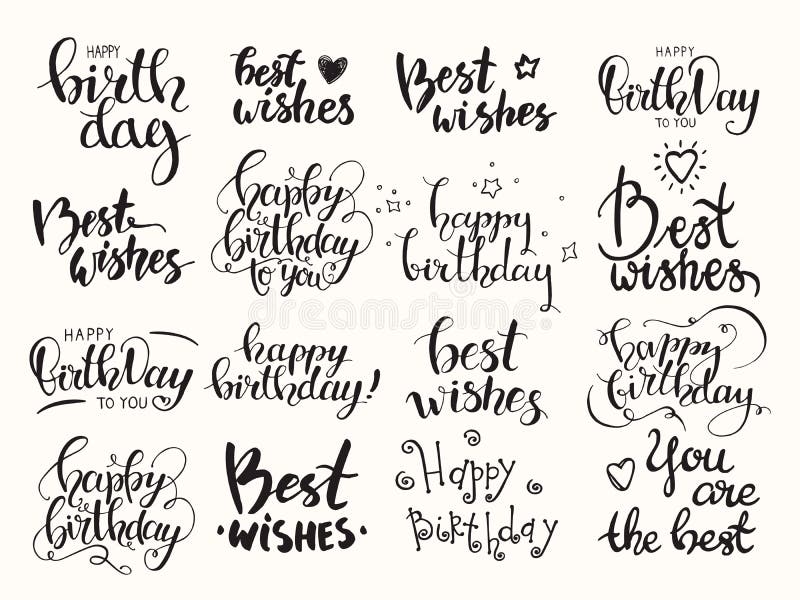 HAPPY
birth
day
best
wishes
Best
wishes
HAPPY
BirthDay
TO YOU
Best
wishes
happy
birthday
to you
happy
birthday
Best
wishes
HAPPY
BirthDay
TO YOU
happy
birthday!
best
wishes
happy
birthday
happy
birthday
Best
WISHES
Happy
Birthday
You
are
the best
dreamstime